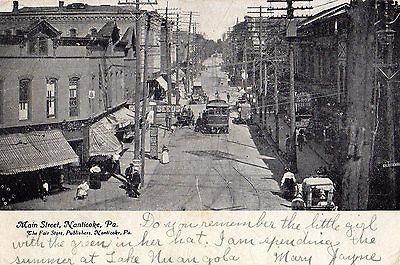 Main Street, Nanticoke, Pa.
The Fair Store, Publishers, Nanticoke, Pa.
Do you remember the little girl
with the green in her hat. I am spending the
summer at Lake Nuangola Mary Jayne